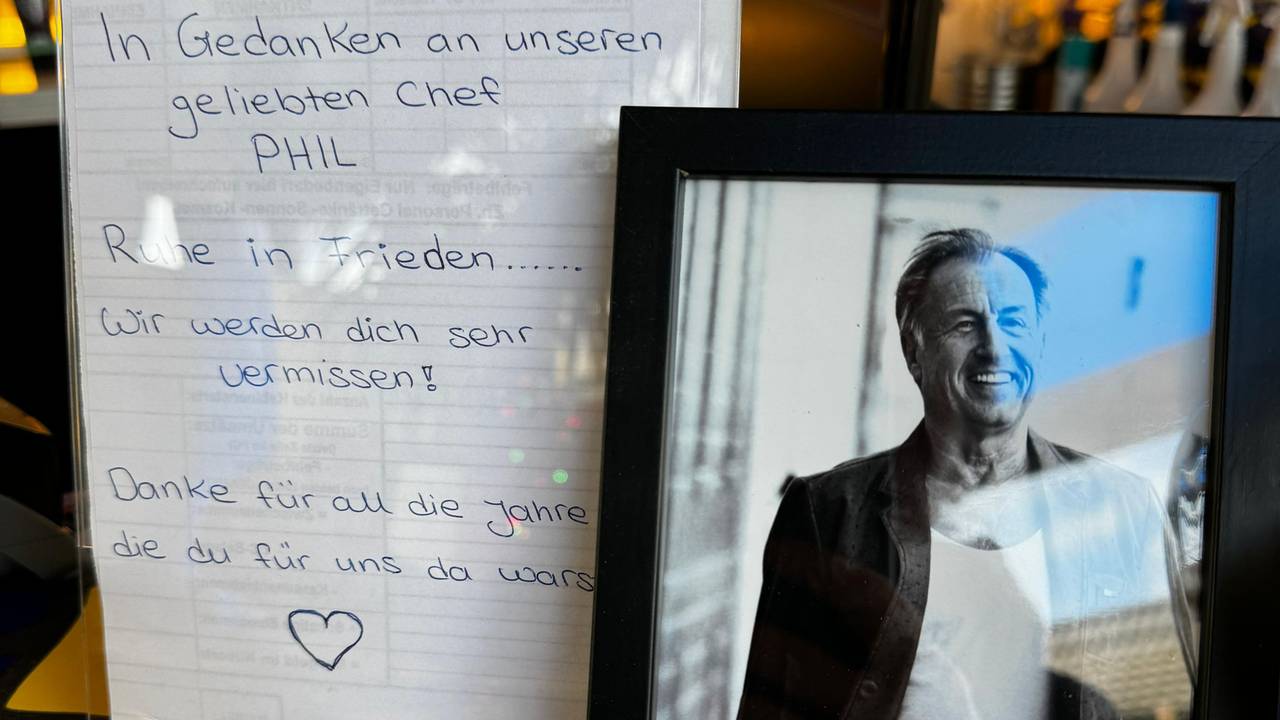 In Gedanken an unseren
geliebten Chef
PHIL
Ruhe in Frieden......
Wir werden dich sehr
vermissen!
Danke für all die Jahre
die du für uns da wars